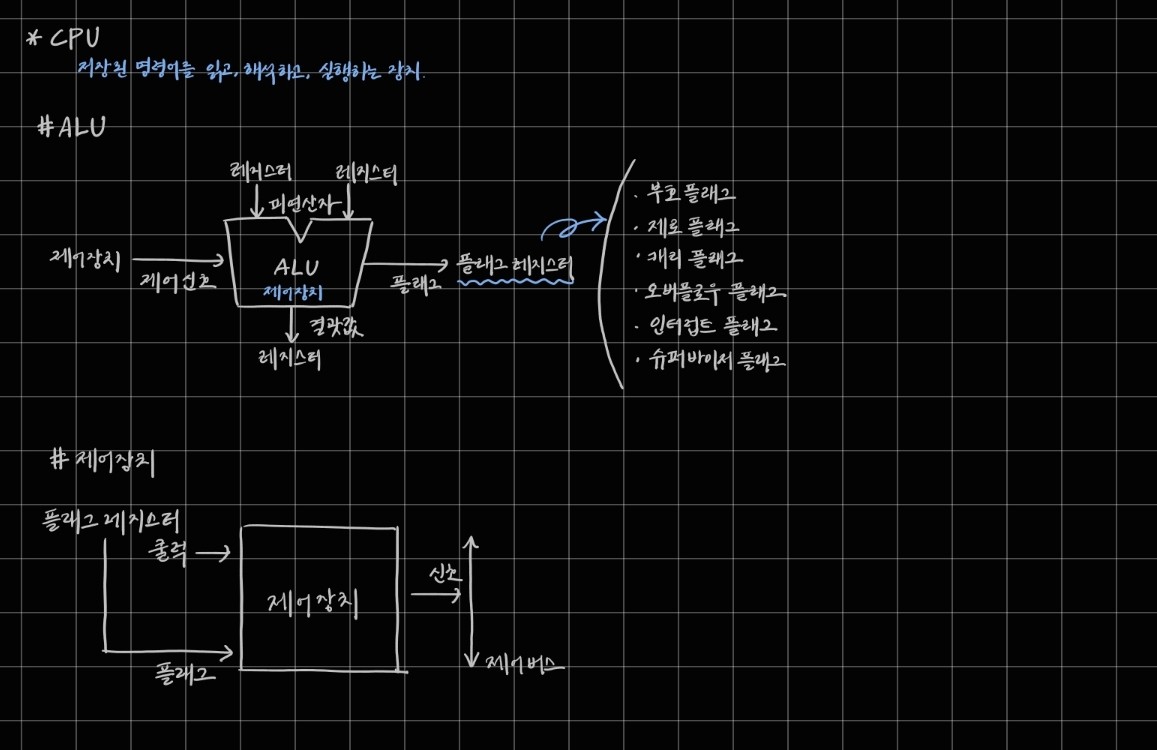 * CPU
저장된 명령어를 읽고, 해석하고, 실행하는 장치.
# ALU
레지스터 레지스터
피연산자
제어장치
제어신호
ALU
제어장치
플래그
플래그 레지스터
결괏값
레지스터
· 부호 플래그
· 제로 플래그
· 캐리 플래그
· 오버플로우 플래그
· 인터럽트 플래그
· 슈퍼바이저 플래그
# 제어장치
플래그 레지스터
클럭
제어장치
신호
플래그
제어버스